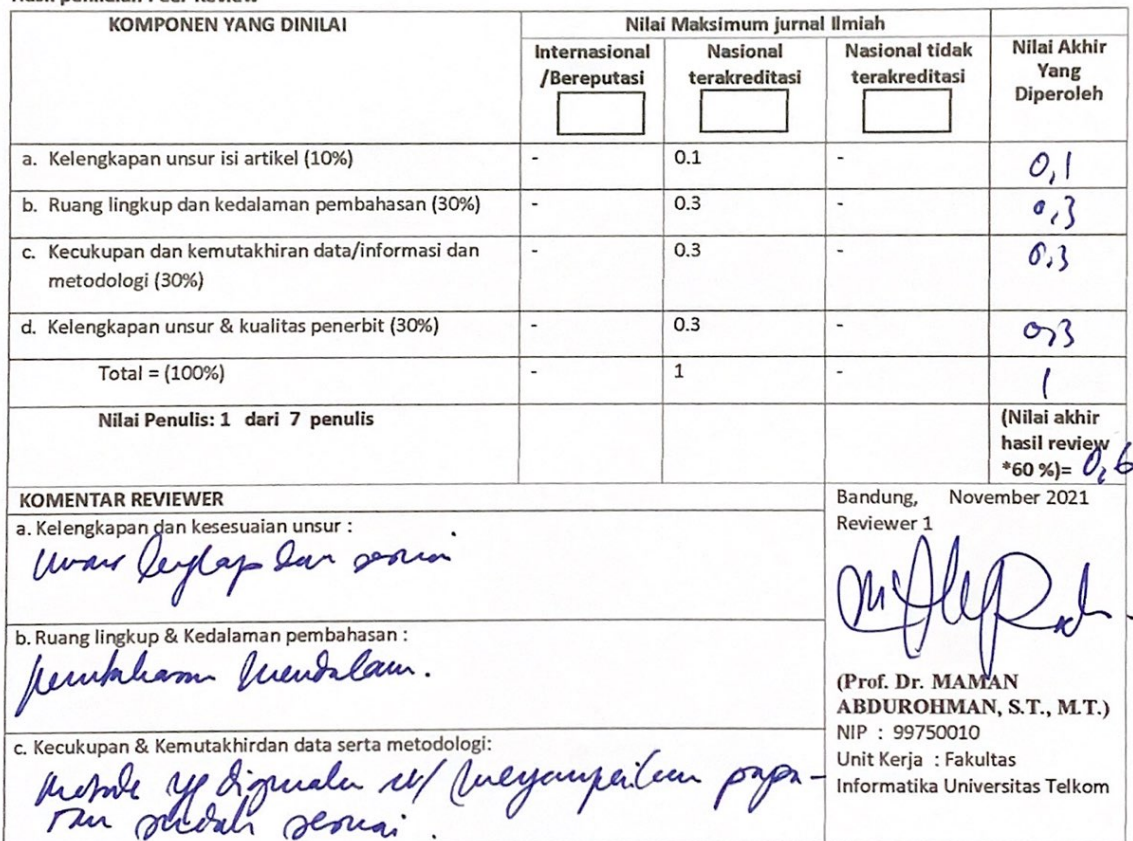 Hasil penilaian Peer Review
KOMPONEN YANG DINILAI
Nilai Maksimum jurnal Ilmiah
Nilai Akhir Yang Diperoleh
Internasional /Bereputasi
Nasional terakreditasi
Nasional tidak terakreditasi
a. Kelengkapan unsur isi artikel (10%) - 0.1 - 0,1
b. Ruang lingkup dan kedalaman pembahasan (30%) - 0.3 - 0,3
c. Kecukupan dan kemutakhiran data/informasi dan metodologi (30%) - 0.3 - 0,3
d. Kelengkapan unsur & kualitas penerbit (30%) - 0.3 - 0,3
Total = (100%) - 1 - 1
Nilai Penulis: 1 dari 7 penulis
(Nilai akhir
hasil review
*60 %)= 0,6
KOMENTAR REVIEWER
a. Kelengkapan dan kesesuaian unsur :
unsur lengkap dan sesuai
b. Ruang lingkup & Kedalaman pembahasan :
pembahasan mendalam.
c. Kecukupan & Kemutakhirdan data serta metodologi:
metode yg digunakan u/ menyampaikan papa-
ran sudah sesuai.
Bandung, November 2021
Reviewer 1
(Prof. Dr. MAMAN
ABDUROHMAN, S.T., M.T.)
NIP : 99750010
Unit Kerja : Fakultas
Informatika Universitas Telkom